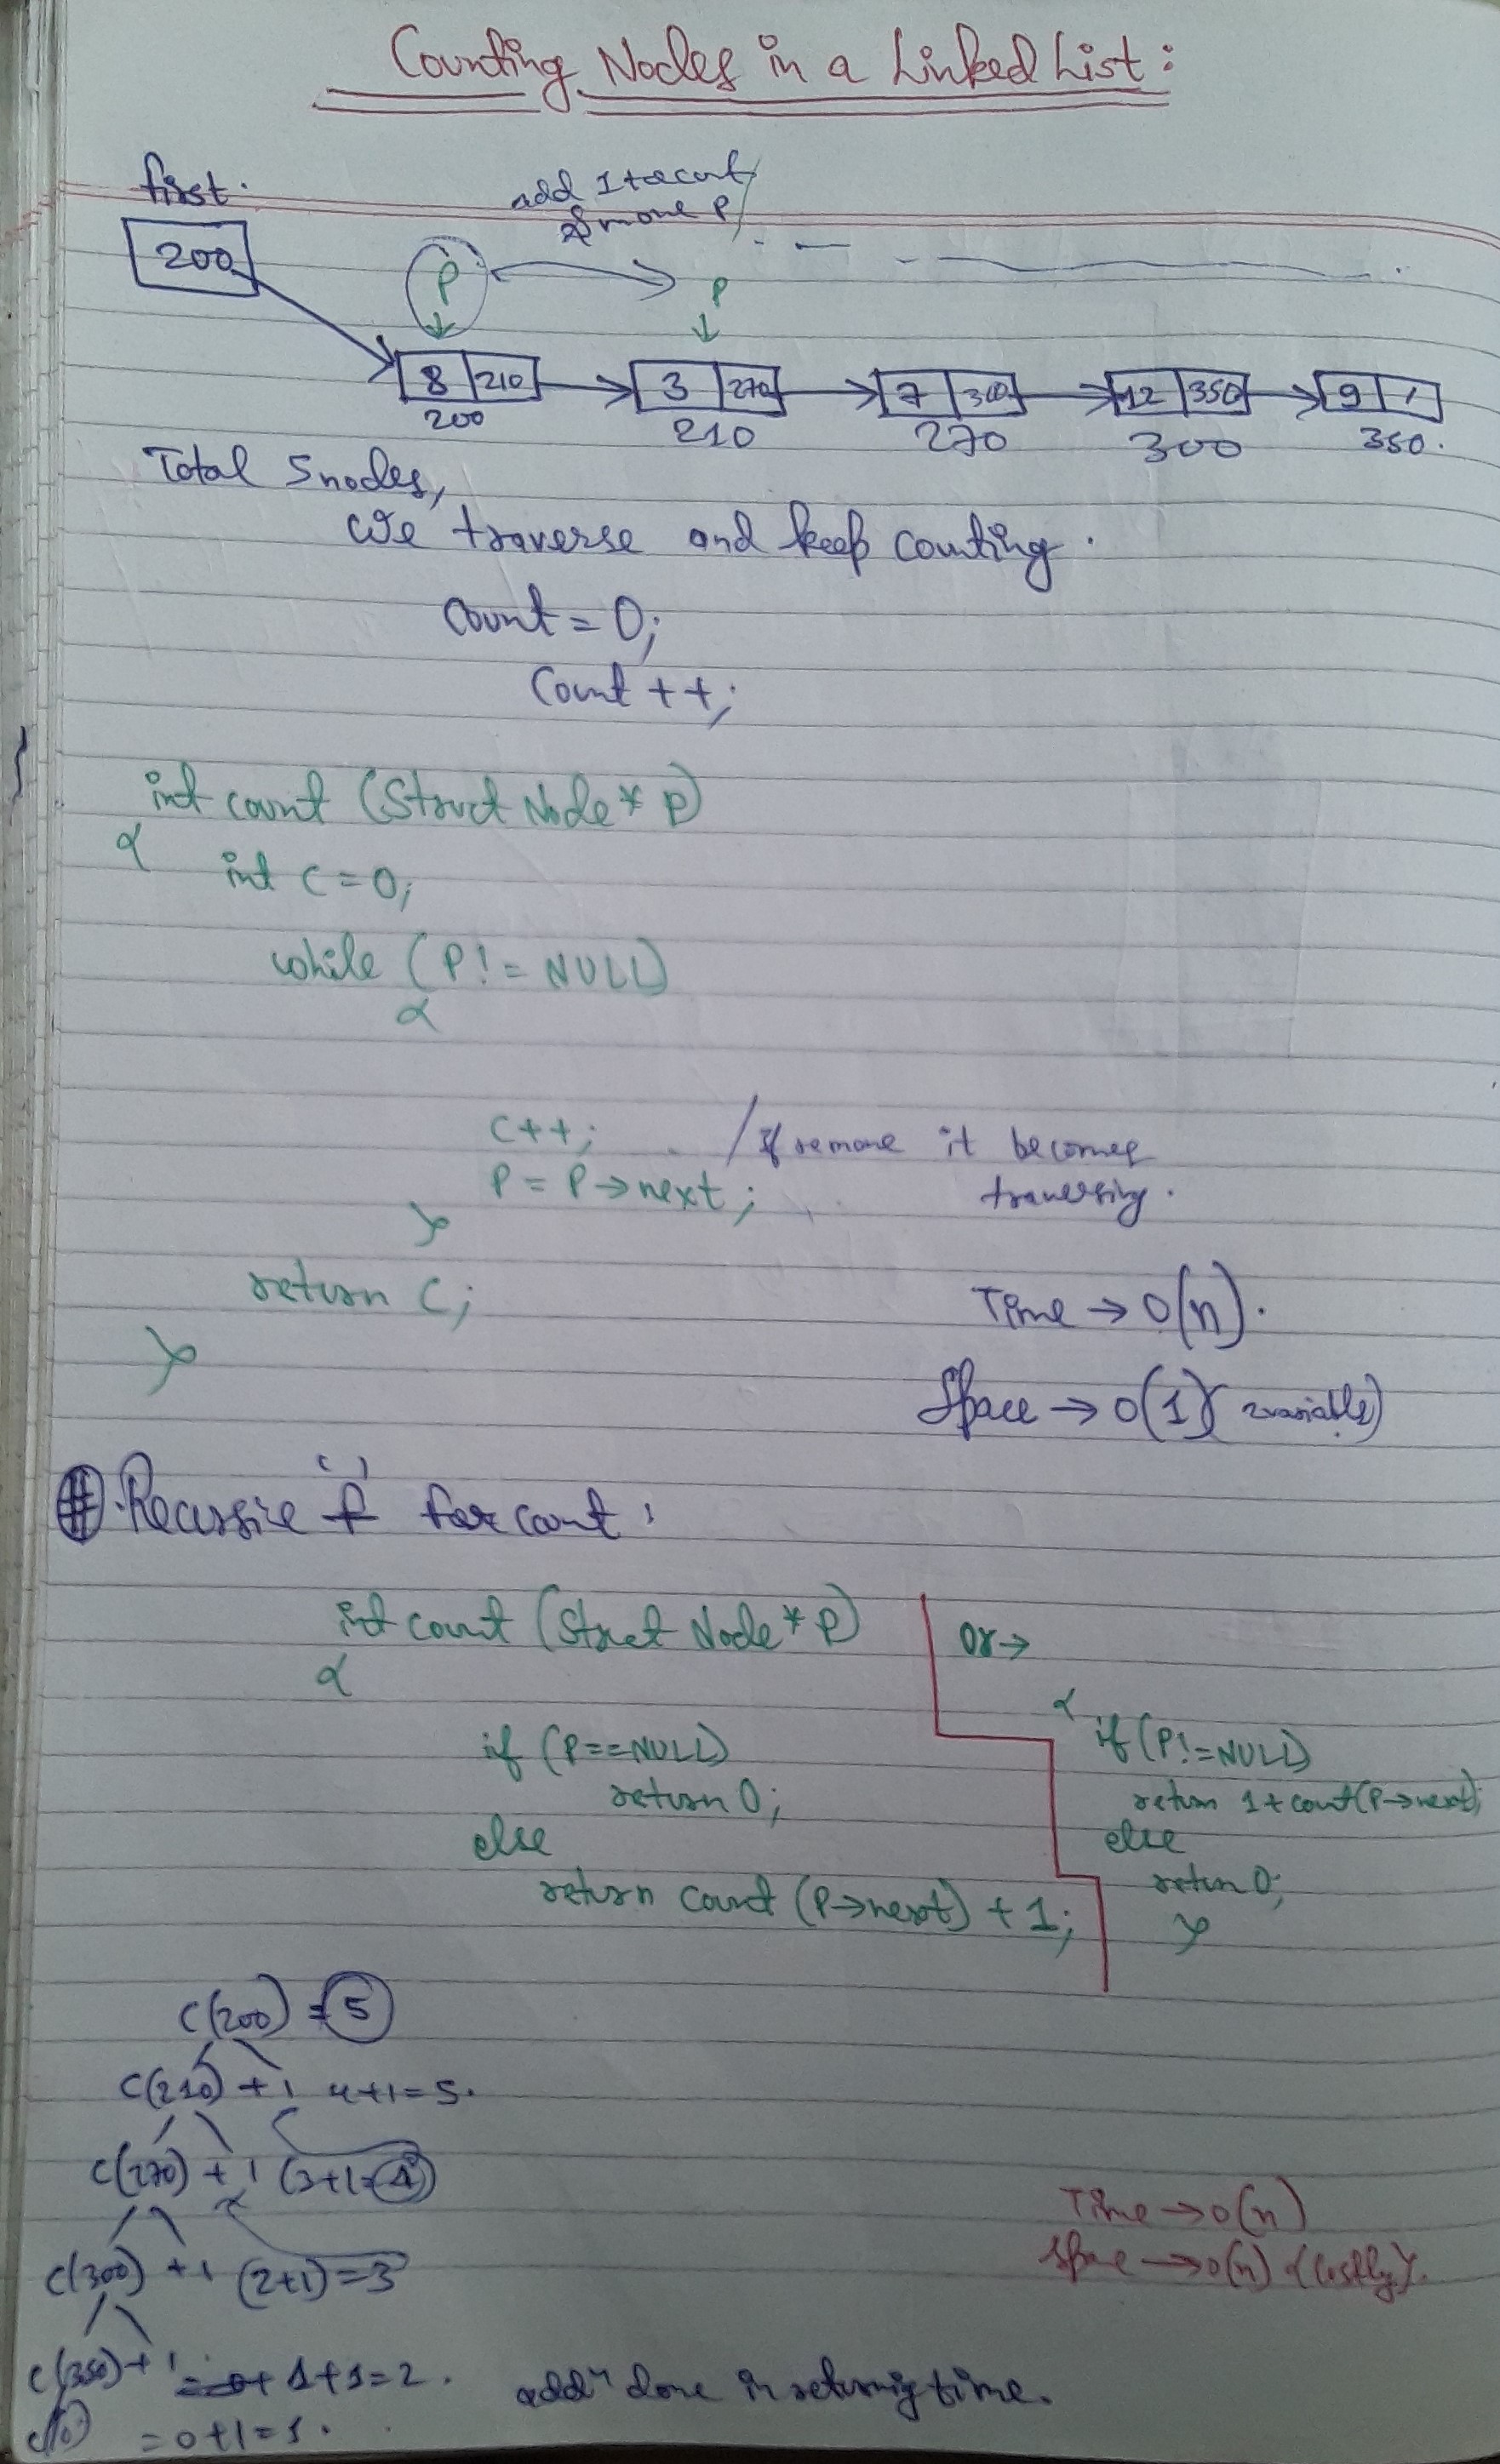 Counting Nodes in a Linked List:
first.
add 1 to count
& move P
200
P
P
8 210
3 270
7 300
12 350
9 /
200
210
270
300
350.
Total 5 nodes,
We traverse and keep counting.
Count = 0;
Count ++;
int count (Struct Node * P)
{
int c = 0;
while (P! = NULL)
{
c++;
/If remove it becomes
P = P → next;
traversing.
}
return c;
Time → O(n).
}
Space → O(1) (2 variable)
# Recursive f() for count:
int count (Struct Node * P)
or →
{
{
if (P==NULL)
if (P!=NULL)
return 0;
return 1+count(P→next);
else
else
return count (P→next) + 1;
return 0;
}
C(200) = 5
C(210) + 1 4+1=5.
C(270) + 1 (3+1=4)
Time → O(n)
Space → O(n) {Costly}.
C(300) + 1 (2+1)=3
C(350)+1 1+1=2. addn done in returning time.
= 0+1=1.